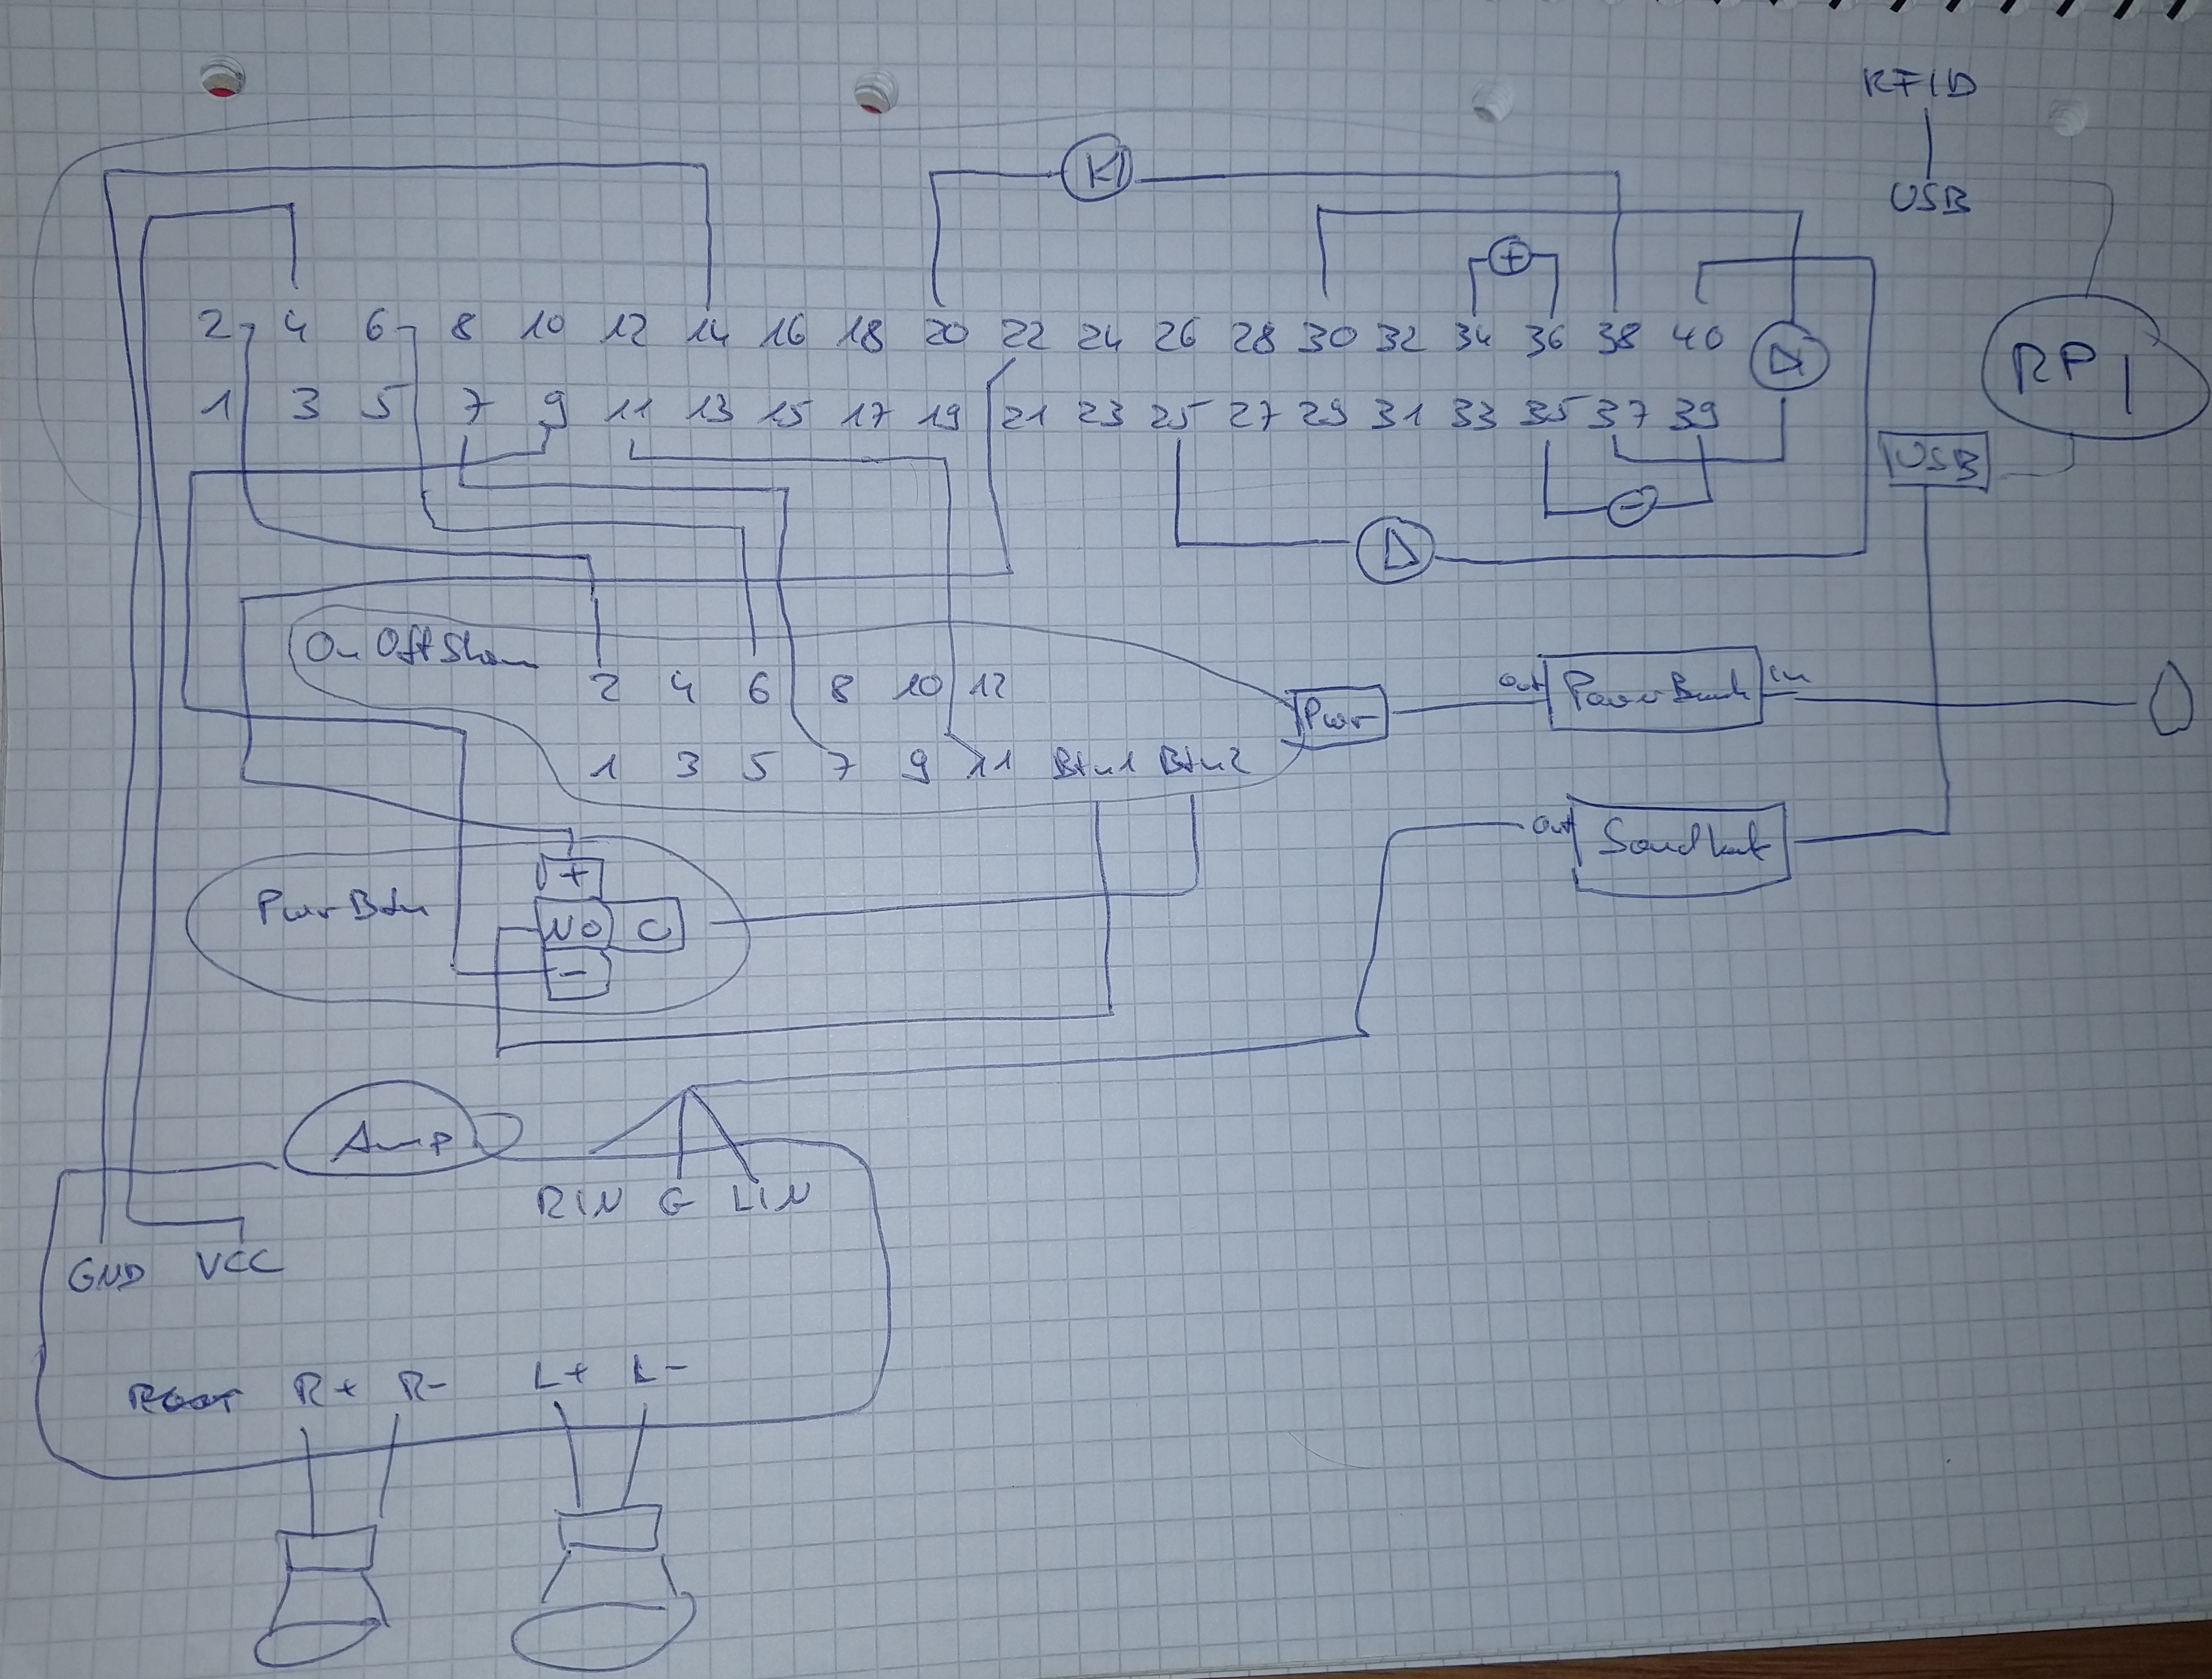 RFID
USB
2 4 6 8 10 12 14 16 18 20 22 24 26 28 30 32 34 36 38 40
1 3 5 7 9 11 13 15 17 19 21 23 25 27 29 31 33 35 37 39
RPI
USB
+
-
OnOffShim
2 4 6 8 10 12
1 3 5 7 9 11 Btn1 Btn2
Pwr
out PowerBank in
out Soundkart
PwrBtn
+
NO C
-
Amp
RIN G LIN
GND VCC
R+ R- L+ L-